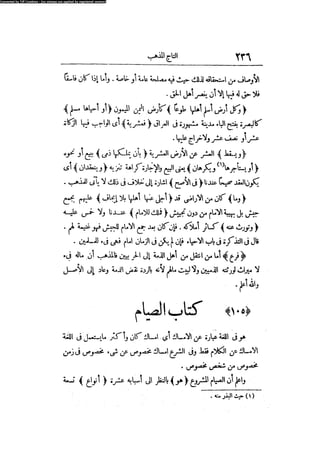 Converted by Tiff Combine - (no stamps are applied by registered version)
٢٣٦ التاج المذهب
الأوصاف من استحقاقه لذلك حيث فيه مصلحة عامة أو خاصة . وأما إذا كان فاسقا
فلا حق له فيها إلا أن ينصر أهل الحق .
﴿ وكل أرض أسلم أهلها طوعا ﴾ كأرض اليمن الميمون ﴿ أو أحياها مسلم ﴾
كالبصرة بفتح الباء مدينة مشهورة فى العراق ﴿ فعشرية ﴾ أى الواجب فيها الزكاة
عشر أو نصف عشر ولا خراج عليها .
﴿ ويسقط ﴾ العشر عن الأرض العشرية ﴿ بأن يملكها ذمى ﴾ ببيع أو نحوه
﴿ أو يستأجرها (١) ويكرهان ﴾ يعنى البيع والإجارة كراهة تنزيه ﴿ وينعقدان ﴾ أى
يكون العقد صحيحا عندنا ﴿ فى الأصح ﴾ اشارة إلى خلاف فى ذلك لا يأتى للمذهب .
﴿ وما ﴾ كان من الاراضى قد ﴿ أجلى عنها أهلها بلا إيجاف ﴾ عليهم بجمع
جيش بل بهيبة الامام من دون تجييش ﴿ فملك للامام ﴾ عندنا ولا خمس عليه
﴿ وتورث عنه ﴾ كسائر أملاكه . فان كان بعد جمع الامام للجيش فهو غنيمة لهم .
قال فى التذكرة فى باب الاحياء فان لم يكن فى الزمان امام فهى فىء للمسلمين .
﴿ فرع ﴾ أما من انتقل من أهل الذمة إلى الحربيين فالمذهب أن ماله فىء
لا ميراث لورثته الذميين ولا لبيت مال لأنه بالردة نقض الذمة وعاد إلى الأصل
والله أعلم .
﴿ ١٠٥ ﴾ كتاب الصيام
هو فى اللغة عبارة عن الامساك أى امساك كان وأكثر ما يستعمل فى اللغة
الامساك عن الكلام فقط وفى الشرع امساك مخصوص عن شىء مخصوص فى زمن
مخصوص من شخص مخصوص .
واعلم أن الصيام المشروع ﴿ هو ﴾ بالنظر إلى أسبابه عشرة ﴿ أنواع ﴾ تسعة
(١) حيث البذر منه .